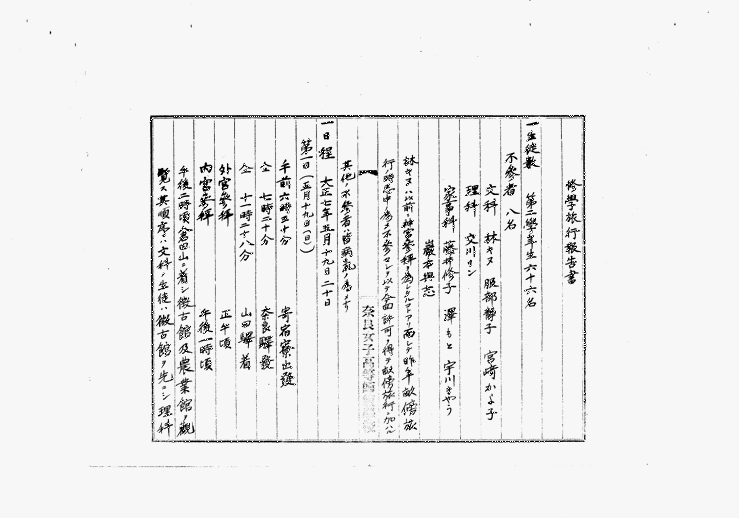 修學旅行報告書
一生徒數 第二學年生六十六名
不參者 八名
文科 林キヌ 服部靜子 宮崎かよ子
理科 交川リン
家事科 藤井修子 澤もと 宇川きやう
巖本與志
林キヌハ以前神宮參拜ヲ為シタルコトアリ而シテ昨年畝傍旅
行ノ時忌中ノ為メ不參セシヲ以テ今回許可ヲ得テ畝傍旅行ニ加ハル
其他ノ不參者ハ皆病氣ノ為メナリ
一日程 大正七年五月十九日二十日
第一日(五月十九日(日))
午前六時五十分 寄宿寮出發
仝 七時二十分 奈良驛發
仝 十一時二十八分 山田驛着
外宮參拜 正午頃
內宮參拜 午後一時頃
午後二時頃倉田山ニ着シ徴古館及農業館ヲ觀
覽ス其順序ハ文科ノ生徒ハ徴古館ヲ先ニシ理科
奈良女子高等師範